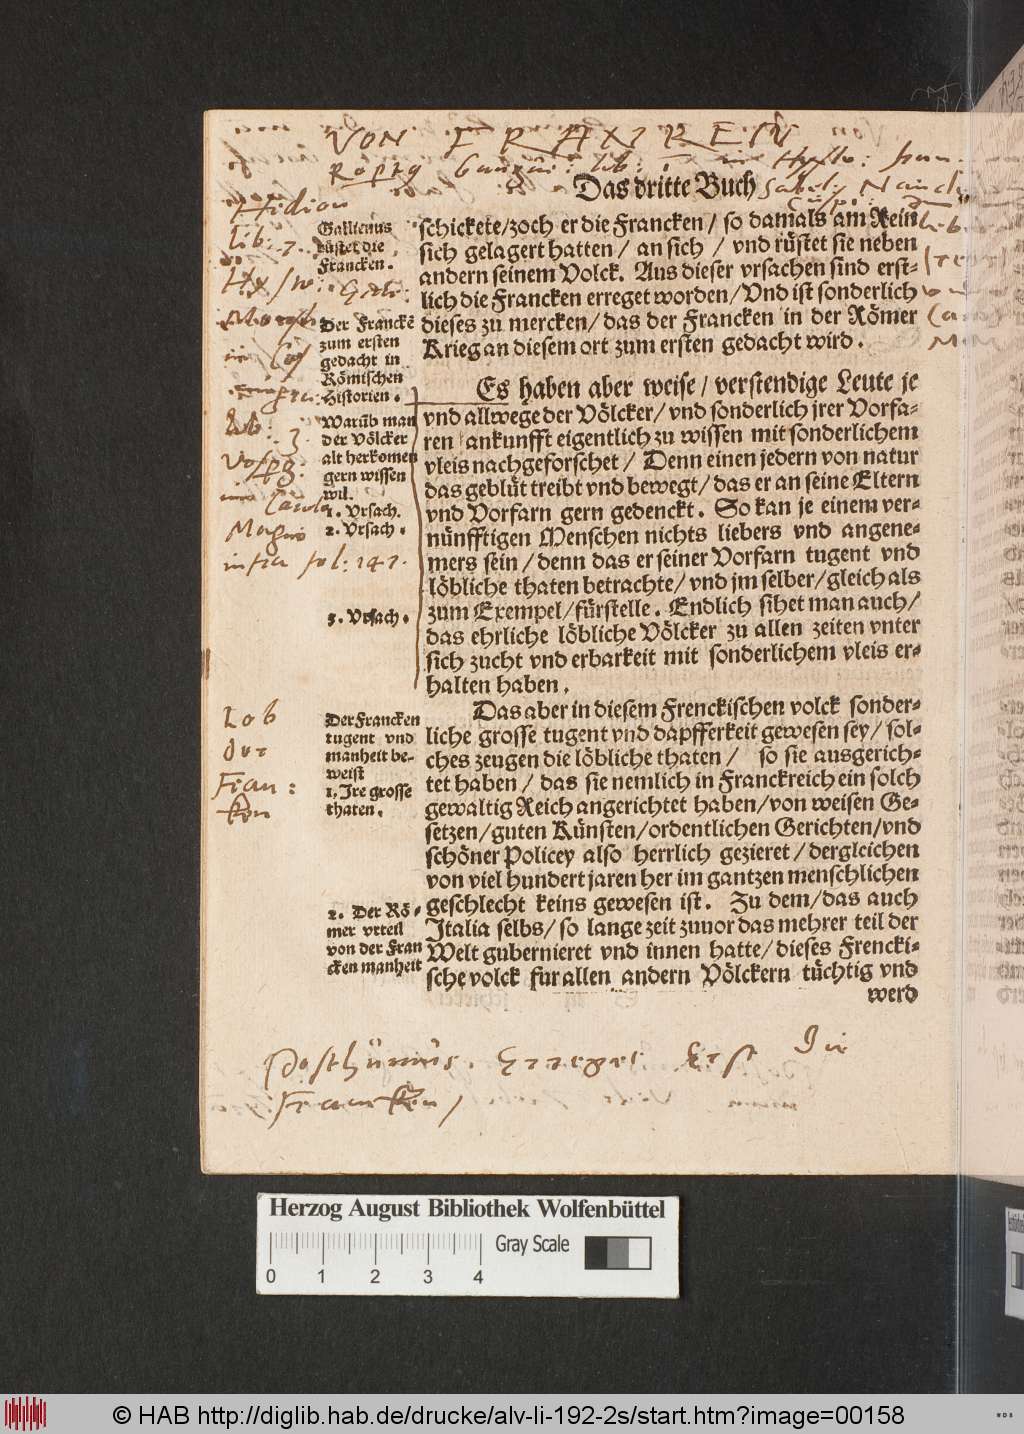 VON FRANKEN
Das dritte Buch
Hedion
lib: 7.
Gallienus
rüstet die
Francken.
schickete/zoch er die Francken/ so damals am Rein
sich gelagert hatten / an sich / vnd rüstet sie neben
andern seinem Volck. Aus dieser vrsachen sind erst-
lich die Francken erreget worden/Vnd ist sonderlich
dieses zu mercken/das der Francken in der Römer
Krieg an diesem ort zum ersten gedacht wird.
Der Franckē
zum ersten
gedacht in
Römischen
Historien.
Es haben aber weise/ verstendige Leute je
vnd allwege der Völcker/vnd sonderlich jrer Vorfa-
ren ankunfft eigentlich zu wissen mit sonderlichem
vleis nachgeforschet/ Denn einen jedern von natur
das geblüt treibt vnd bewegt/das er an seine Eltern
vnd Vorfarn gern gedenckt. So kan je einem ver-
nünfftigen Menschen nichts liebers vnd angene-
mers sein/denn das er seiner Vorfarn tugent vnd
löbliche thaten betrachte/vnd jm selber/gleich als
zum Exempel/fürstelle. Endlich sihet man auch/
das ehrliche löbliche Völcker zu allen zeiten vnter
sich zucht vnd erbarkeit mit sonderlichem vleis er-
halten haben.
Warūb man
der Völcker
alt herkomen
gern wissen
wil.
1. Vrsach.
2. Vrsach.
infra fol: 147.
3. Vrsach.
Lob
der
Fran:
ken
Der Francken
tugent vnd
manheit be-
weist
1. Jre grosse
thaten.
Das aber in diesem Frenckischen volck sonder-
liche grosse tugent vnd dapfferkeit gewesen sey/ sol-
ches zeugen die löbliche thaten/ so sie ausgerich-
tet haben/ das sie nemlich in Franckreich ein solch
gewaltig Reich angerichtet haben/von weisen Ge-
setzen/guten Künsten/ordentlichen Gerichten/vnd
schöner Policey also herrlich gezieret/dergleichen
von viel hundert jaren her im gantzen menschlichen
geschlecht keins gewesen ist. Zu dem/das auch
Italia selbs/so lange zeit zuuor das mehrer teil der
Welt gubernieret vnd innen hatte/dieses Frencki-
sche volck fur allen andern Völckern tüchtig vnd
werd
2. Der Rö-
mer vrteil
von der Fran
cken manheit
Posthumus. Erreget Erst Die
Francken/
Herzog August Bibliothek Wolfenbüttel
Gray Scale
0 1 2 3 4
© HAB http://diglib.hab.de/drucke/alv-li-192-2s/start.htm?image=00158